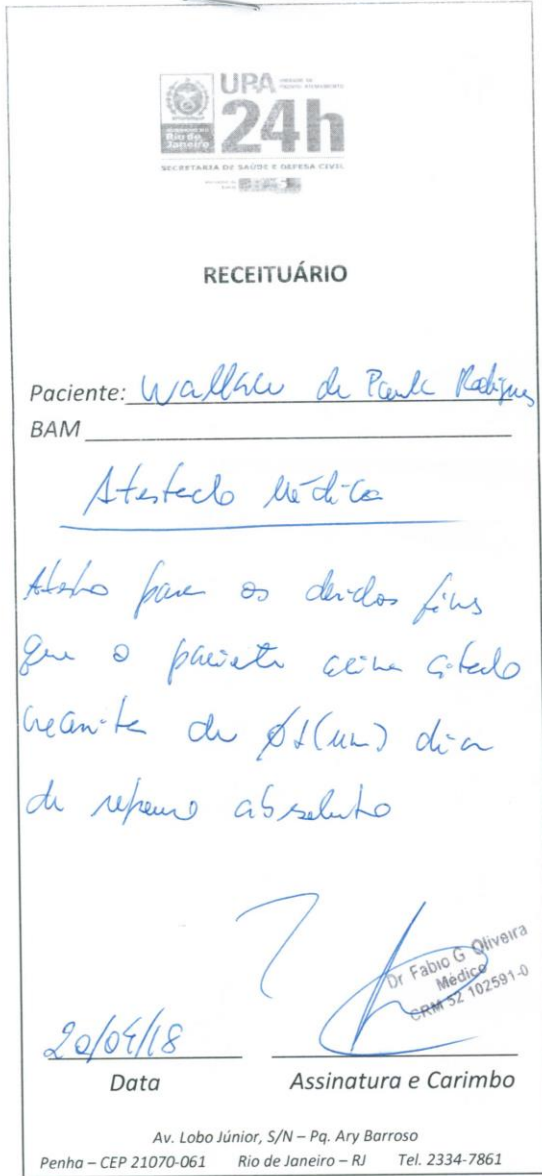 UPA
24h
GOVERNO DO
Rio de
Janeiro
SECRETARIA DE SAÚDE E DEFESA CIVIL
RECEITUÁRIO
Paciente: Wallace de Paula Rodrigues
BAM
Atestado Médico
Atesto para os devidos fins
que o paciente acima citado
necessita de 01(um) dia
de repouso absoluto
Dr Fabio G Oliveira
Médico
CRM 52 102591-0
20/04/18
Data Assinatura e Carimbo
Av. Lobo Júnior, S/N – Pq. Ary Barroso
Penha – CEP 21070-061 Rio de Janeiro – RJ Tel. 2334-7861